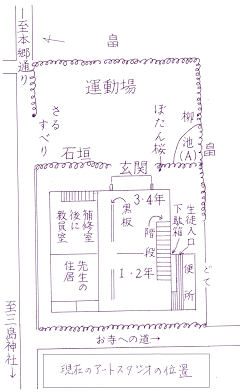 至本郷通り
畠
運動場
さるすべり
ぼたん桜
柳
池(A)
畠
石垣
玄関
補修室
後に
教員室
黒板
3・4年
階段
生徒入口
下駄箱
先生の
住居
1・2年
便所
どて
お寺への道→
至三島神社↓
現在のアートスタジオの位置